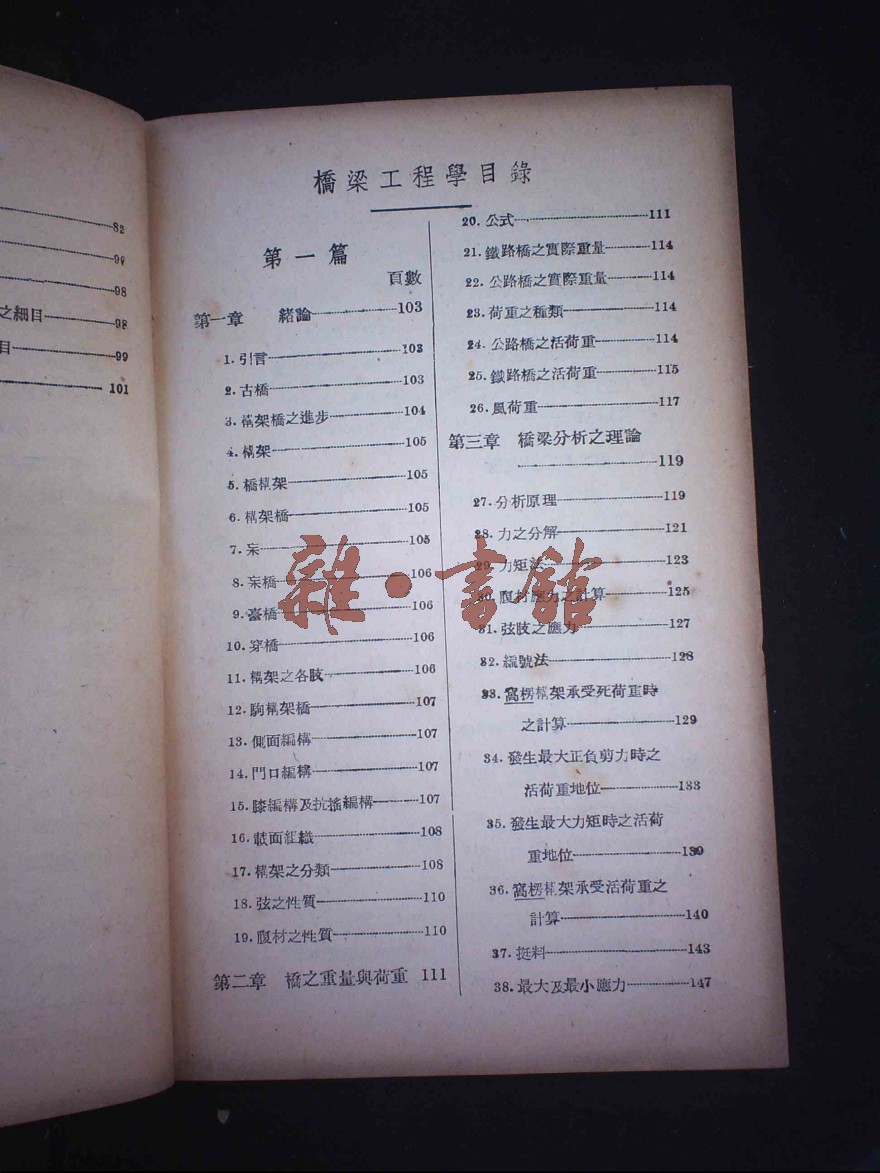 82
9
98
之細目 98
目 99
101
橋梁工程學目錄
第一篇
頁數
第一章 緒論 103
1. 引言 103
2. 古橋 103
3. 構架橋之進步 104
4. 構架 105
5. 橋構架 105
6. 構架橋 105
7. 桁 105
8. 桁橋 106
9. 臺橋 106
10. 穿橋 106
11. 構架之各肢 106
12. 駒構架橋 107
13. 側面編構 107
14. 門口編構 107
15. 膝編構及抗搖編構 107
16. 載面組織 108
17. 構架之分類 108
18. 弦之性質 110
19. 腹材之性質 110
第二章 橋之重量與荷重 111
20. 公式 111
21. 鐵路橋之實際重量 114
22. 公路橋之實際重量 114
23. 荷重之種類 114
24. 公路橋之活荷重 114
25. 鐵路橋之活荷重 115
26. 風荷重 117
第三章 橋梁分析之理論
119
27. 分析原理 119
28. 力之分解 121
29. 力矩法 123
30. 腹材應力之計算 125
31. 弦肢之應力 127
32. 編號法 128
33. 窩楞構架承受死荷重時
之計算 129
34. 發生最大正負剪力時之
活荷重地位 133
35. 發生最大力矩時之活荷
重地位 139
36. 窩楞構架承受活荷重之
計算 140
37. 挺料 143
38. 最大及最小應力 147
雜·書館